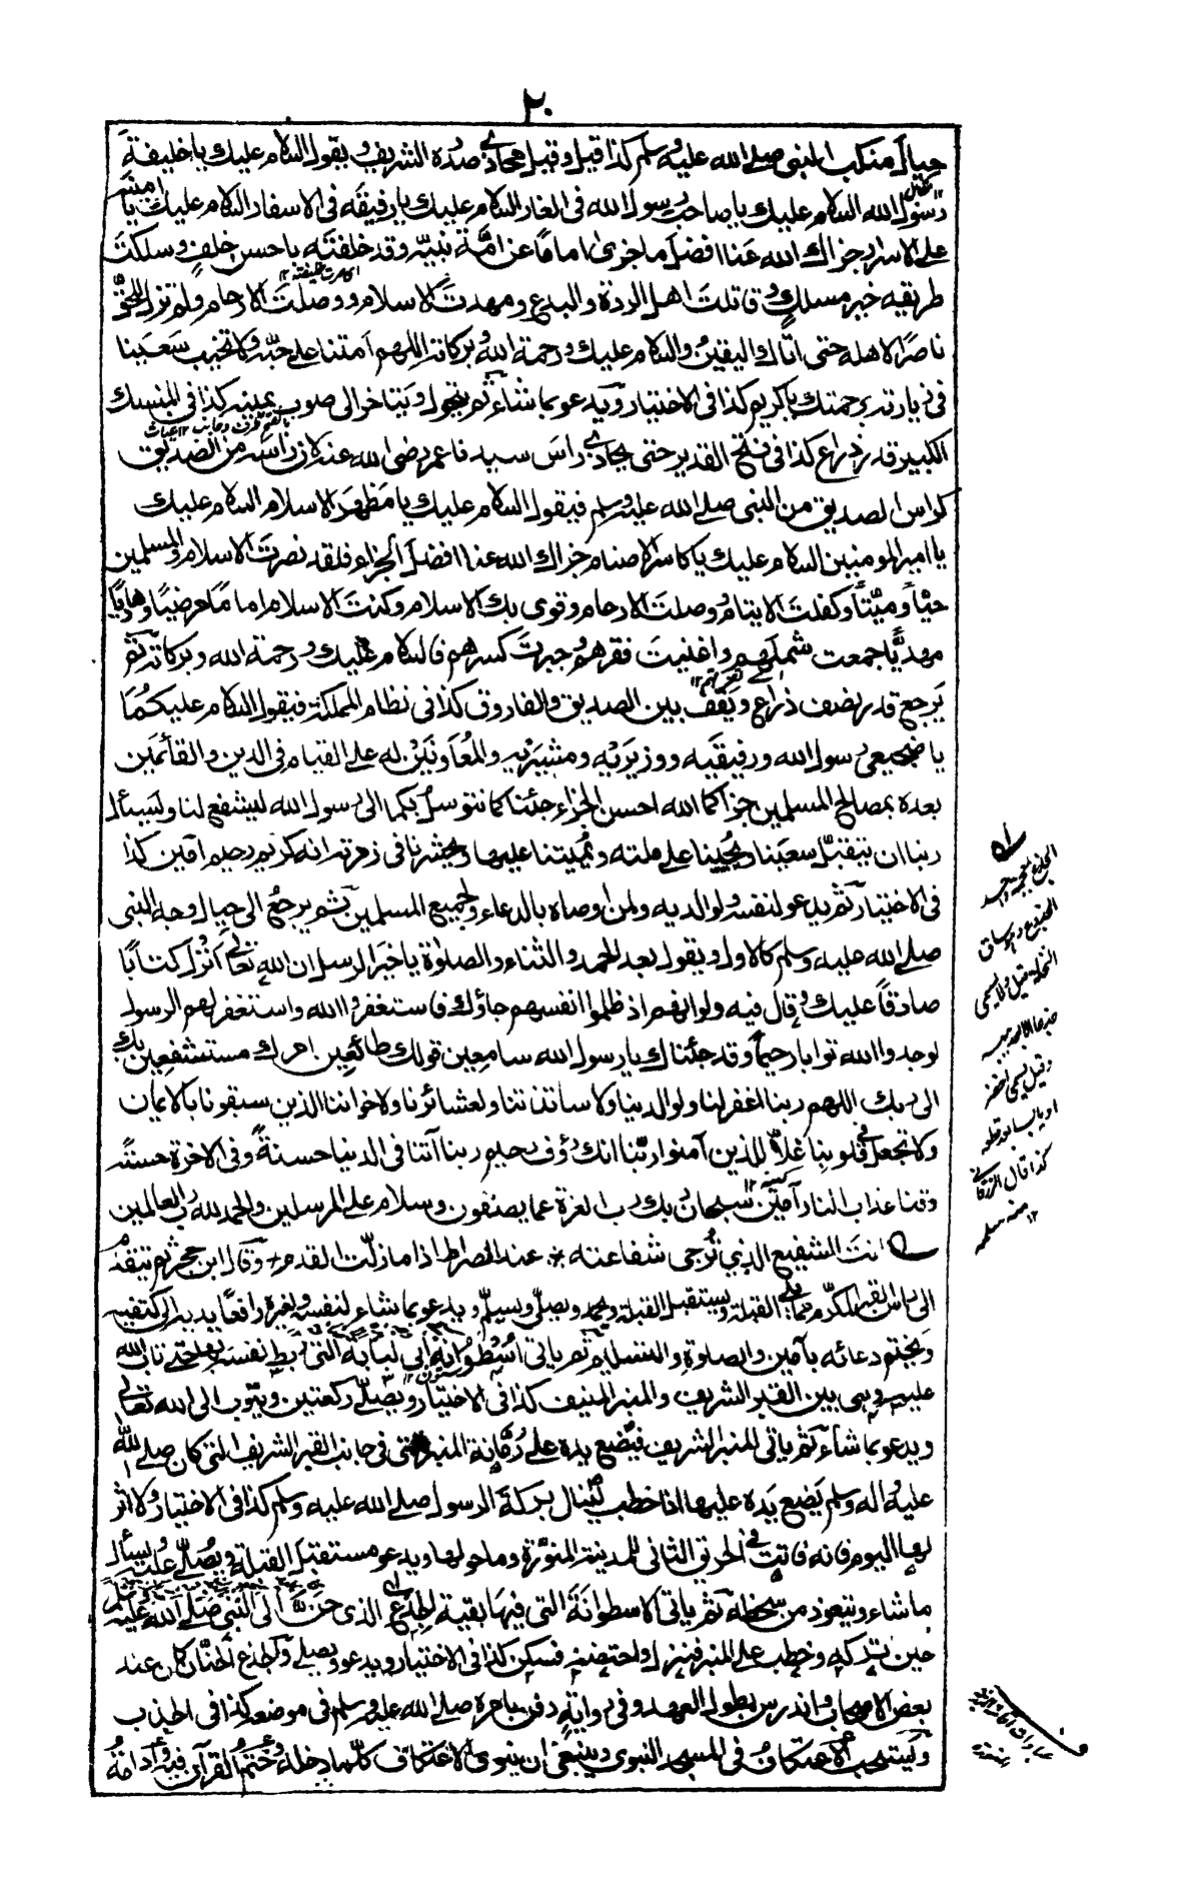 ٢٠
حيال منكب النبي صلے الله عليه وسلم كذا قيل وقيل محاذے صدره الشريف ويقول السلام عليك يا خليفة
رسول الله السلام عليك يا صاحب رسول الله فى الغار السلام عليك يا رفيقه فى الاسفار السلام عليك يا امينه
على الاسرار جزاك الله عنا افضل ما جزى اماما عن امّة نبيّه وقد خلفته باحسن خلف وسلكت
طريقه خير مسلك وقاتلت اهل الردة والبدع ومهدت الاسلام ووصلت الارحام ولم تزل للحق
ناصرًا لاهله حتى اتاك اليقين والسلام عليك ورحمة الله وبركاته اللهم امتنا على حبّه ولا تخيب سعينا
فى زيارته برحمتك يا كريم كذا فى الاختيار ويدعو بما شاء ثم يتحول ويتاخر الى صوب يمينه كذا فى المنسك
الكبير قدر ذراع كذا فى فتح القدير حتى يحاذے راس سيدنا عمر رضى الله عنه لان راسه من الصديق
كراس الصديق من النبى صلے الله عليه وسلم فيقول السلام عليك يا مظهر الاسلام السلام عليك
يا امير المومنين السلام عليك يا كاسر الاصنام جزاك الله عنا افضل الجزاء فلقد نصرت الاسلام والمسلمين
حيّا وميّتا وكفلت الايتام ووصلت الارحام وقوى بك الاسلام وكنت للاسلام اماما مرضيًا وهاديًا
مهديًا جمعت شملهم واغنيت فقرهم وجبرت كسرهم فالسلام عليك ورحمة الله وبركاته ثم
يرجع قدر نصف ذراع ويقف بين الصديق والفاروق كذا فى نظام المملكة فيقول السلام عليكما
يا ضجيعى رسول الله ورفيقيه ووزيريه ومشيريه والمعاونين له على القيام فى الدين والقائمين
بعده بمصالح المسلمين جزاكما الله احسن الجزاء جئنا كما نتوسل بكما الى رسول الله ليشفع لنا ويسأل
ربنا ان يتقبل سعينا ويحيينا على ملته ويميتنا عليها ويحشرنا فى زمرته انه كريم رحيم آمين كذا
فى الاختيار ثم يدعو لنفسه ولوالديه ولمن اوصاه بالدعاء ولجميع المسلمين ثم يرجع الى حيال وجه النبى
صلے الله عليه وسلم كالاول ويقول بعد الحمد والثناء والصلوة يا خير الرسل ان الله تعالى انزل كتابًا
صادقًا عليك وقال فيه ولو انهم اذ ظلموا انفسهم جاؤك فاستغفروا الله واستغفر لهم الرسول
لوجدوا الله توابا رحيما وقد جئناك يا رسول الله سامعين قولك طائعين امرك مستشفعين بك
الى ربك اللهم ربنا اغفر لنا ولوالدينا ولاساتذتنا ولعشائرنا ولاخواننا الذين سبقونا بالايمان
ولا تجعل فى قلوبنا غلّا للذين آمنوا ربّنا انك رؤف رحيم ربنا آتنا فى الدنيا حسنة وفى الاخرة حسنة
وقنا عذاب النار آمين سبحان ربك رب العزة عما يصفون وسلام على المرسلين والحمد لله رب العالمين
انت الشفيع الذي ترجى شفاعته * عند الصراط اذا ما زلّت القدم + وقال ابن حجر ثم يتقدم
الى راس القبر المكرّم فيقف القبلة ويستقبل القبلة ويحمد ويصلّى ويسلّم ويدعو بما شاء لنفسه ولغيره رافعًا يديه الى كتفيه
ويختم دعائه بآمين والصلوة والتسليم ثم ياتى اسطوانة ابى لبابة التى ربط نفسه بها حتى تاب الله
عليه وهى بين القبر الشريف والمنبر المنيف كذا فى الاختيار ويصلّے ركعتين ويتوب الى الله تعالى
ويدعو بما شاء ثم ياتى المنبر الشريف فيضع يده على رمّانة المنبر التى فى جانب القبر الشريف التى كان صلے الله
عليه واله وسلم يضع يده عليها اذا خطب لينال بركة الرسول صلے الله عليه وسلم كذا فى الاختيار ولا اثر
لها اليوم فانه فاتت فى الحريق الثانى للمدينة المنورة وما حولها ويدعو مستقبل القبلة ويصلّے عليه ويسأل
ما شاء ويتعوذ من سخطه ثم ياتى الاسطوانة التى فيها بقية الجذع الذى حنّ الى النبى صلے الله عليه وسلم
حين تركه وخطب على المنبر فنزل واحتضنه فسكن كذا فى الاختيار ويدعو ويصلے والجذع الحنّان كان عند
بعض الاصحاب واندرس بطول العهد وفى رواية دفن بامره صلے الله عليه وسلم فى موضعه كذا فى الجذب
ويستحب الاعتكاف فى المسجد النبوى وينبغى ان ينوى الاعتكاف كلما دخله وختم القرآن فيه وادامة